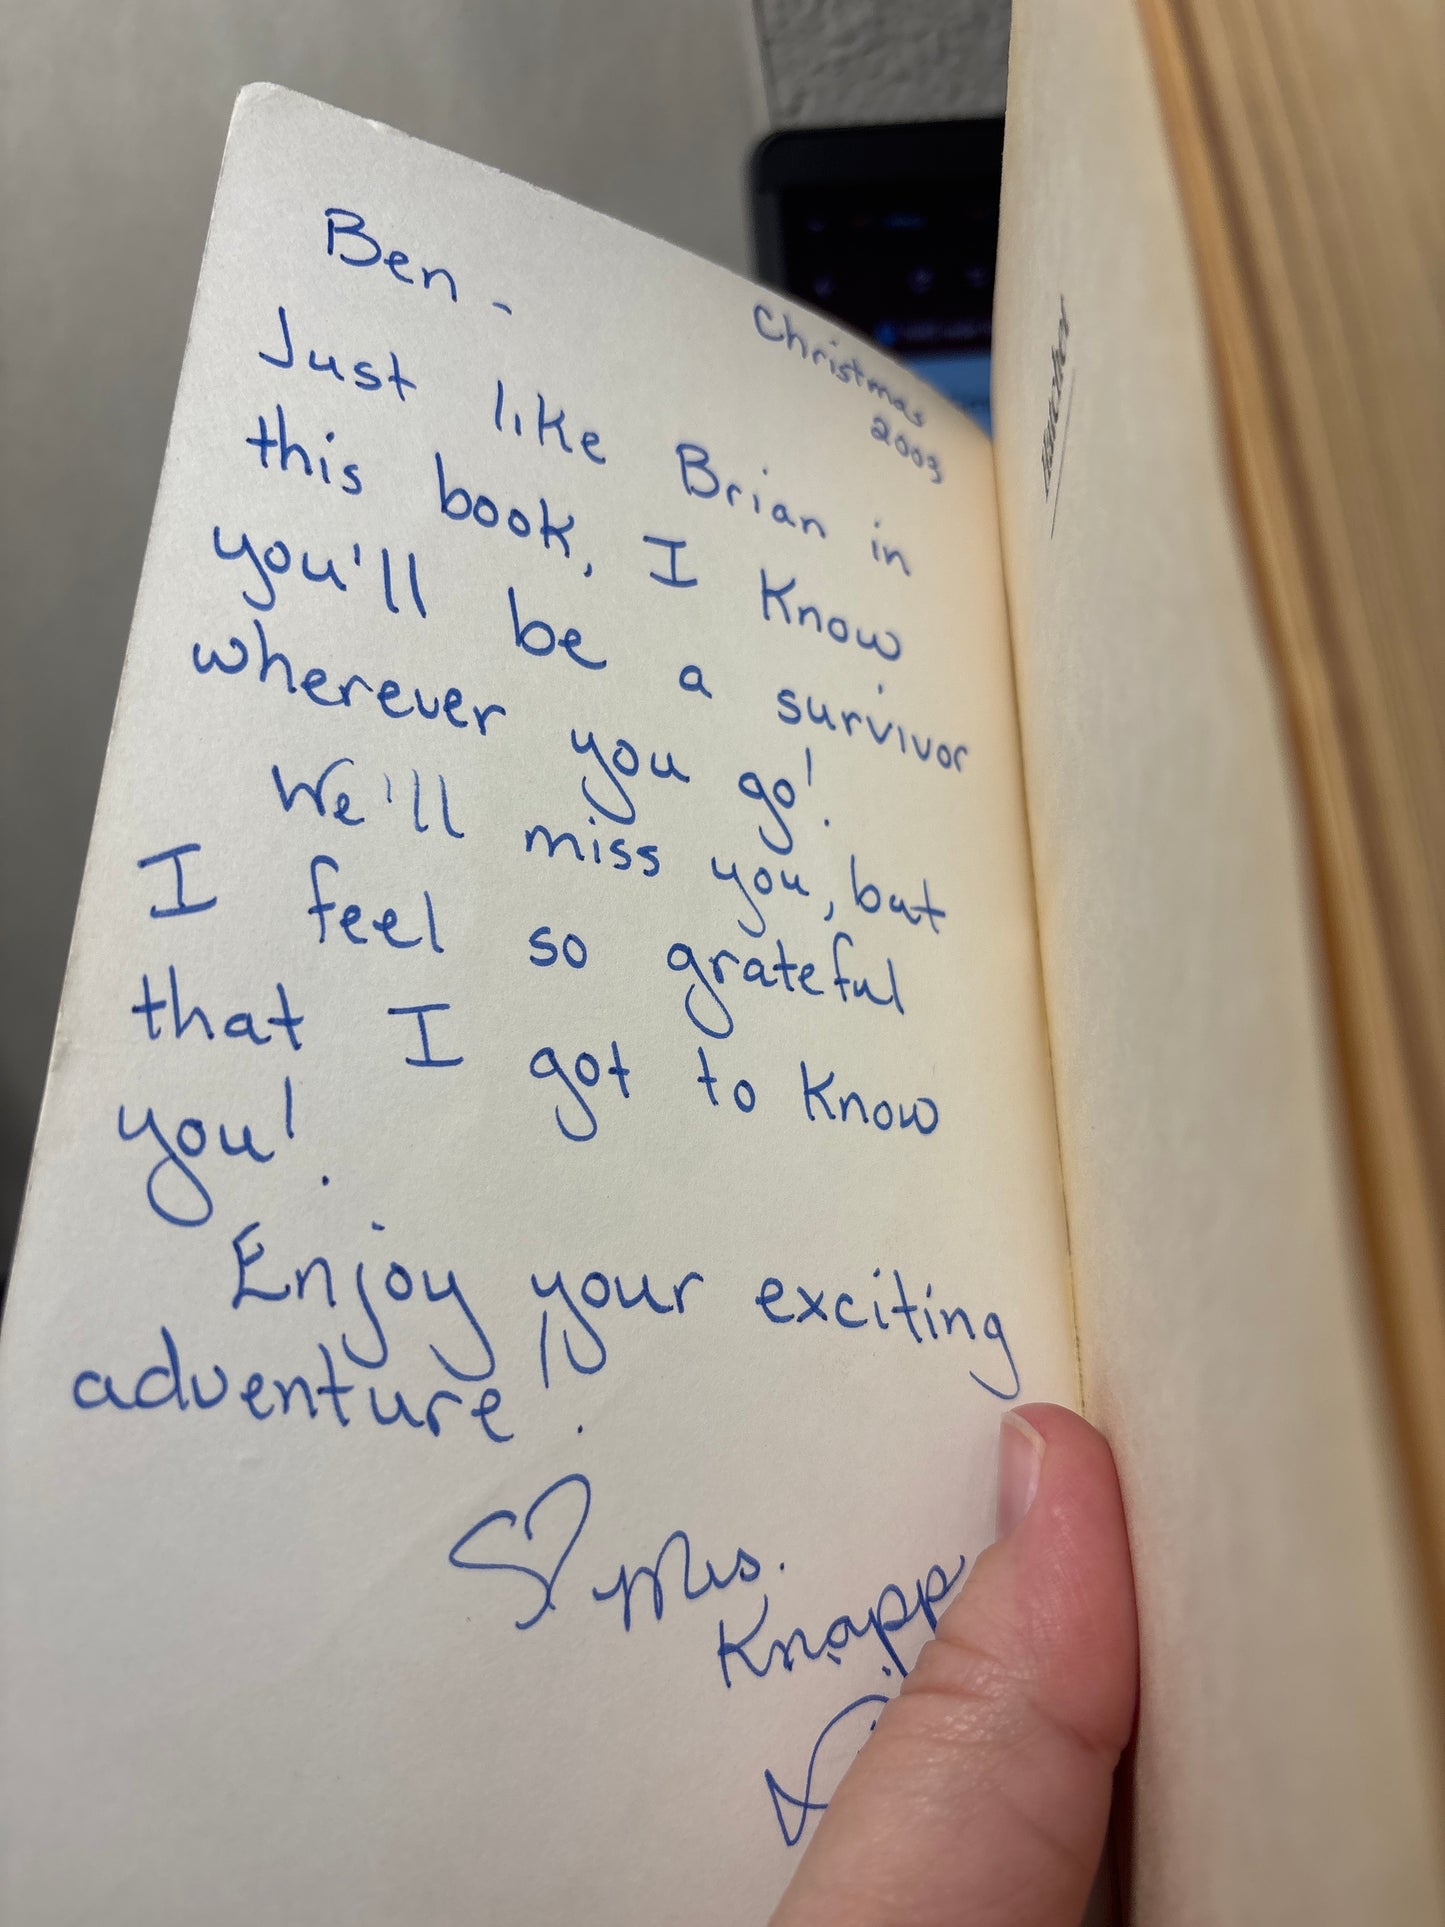 Ben -
Christmas
2003
Just like Brian in
this book, I know
you'll be a survivor
wherever you go!
We'll miss you, but
I feel so grateful
that I got to know
you!
Enjoy your exciting
adventure!
Mrs.
Knapp